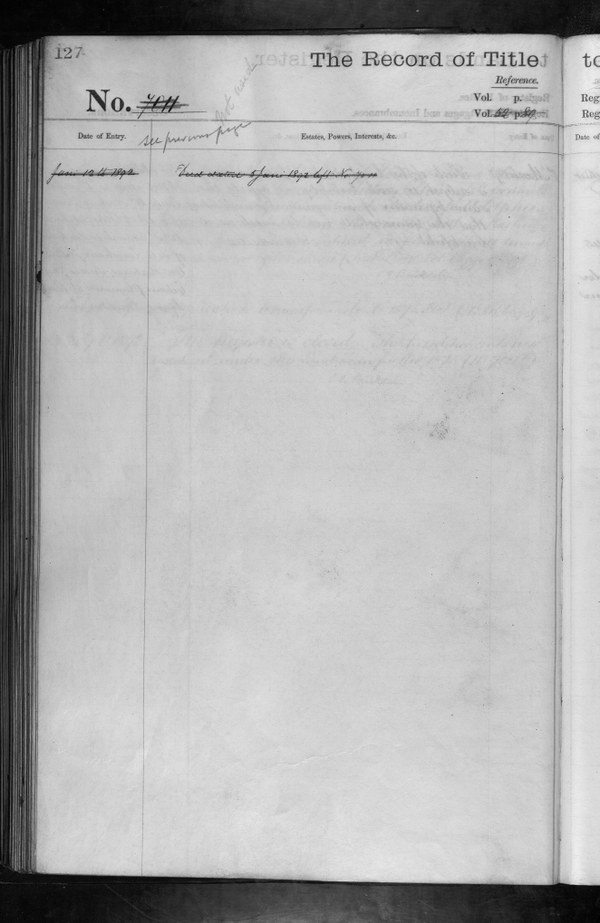 127
The Record of Title
Reference.
No. 7011
Vol. p.
Vol. 52 p. 89
not used
see previous page
Date of Entry.
Estates, Powers, Interests, &c.
Jan: 12th 1892
Deed dated 5 Jan: 1892 left No
Reg
Reg
Date of